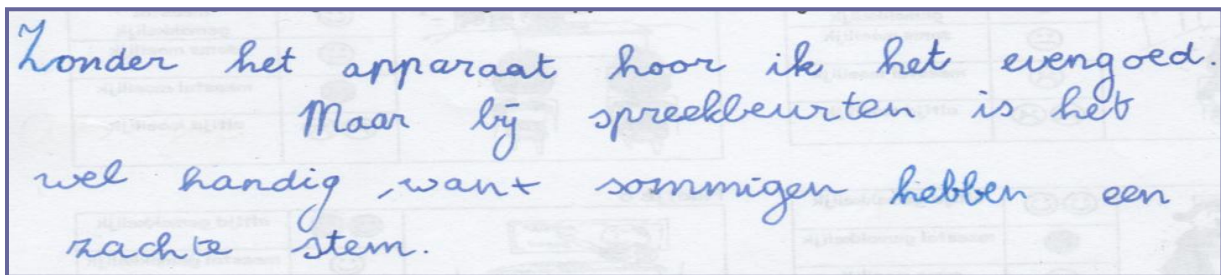 Zonder het apparaat hoor ik het evengoed.
Maar bij spreekbeurten is het
wel handig, want sommigen hebben een
zachte stem.